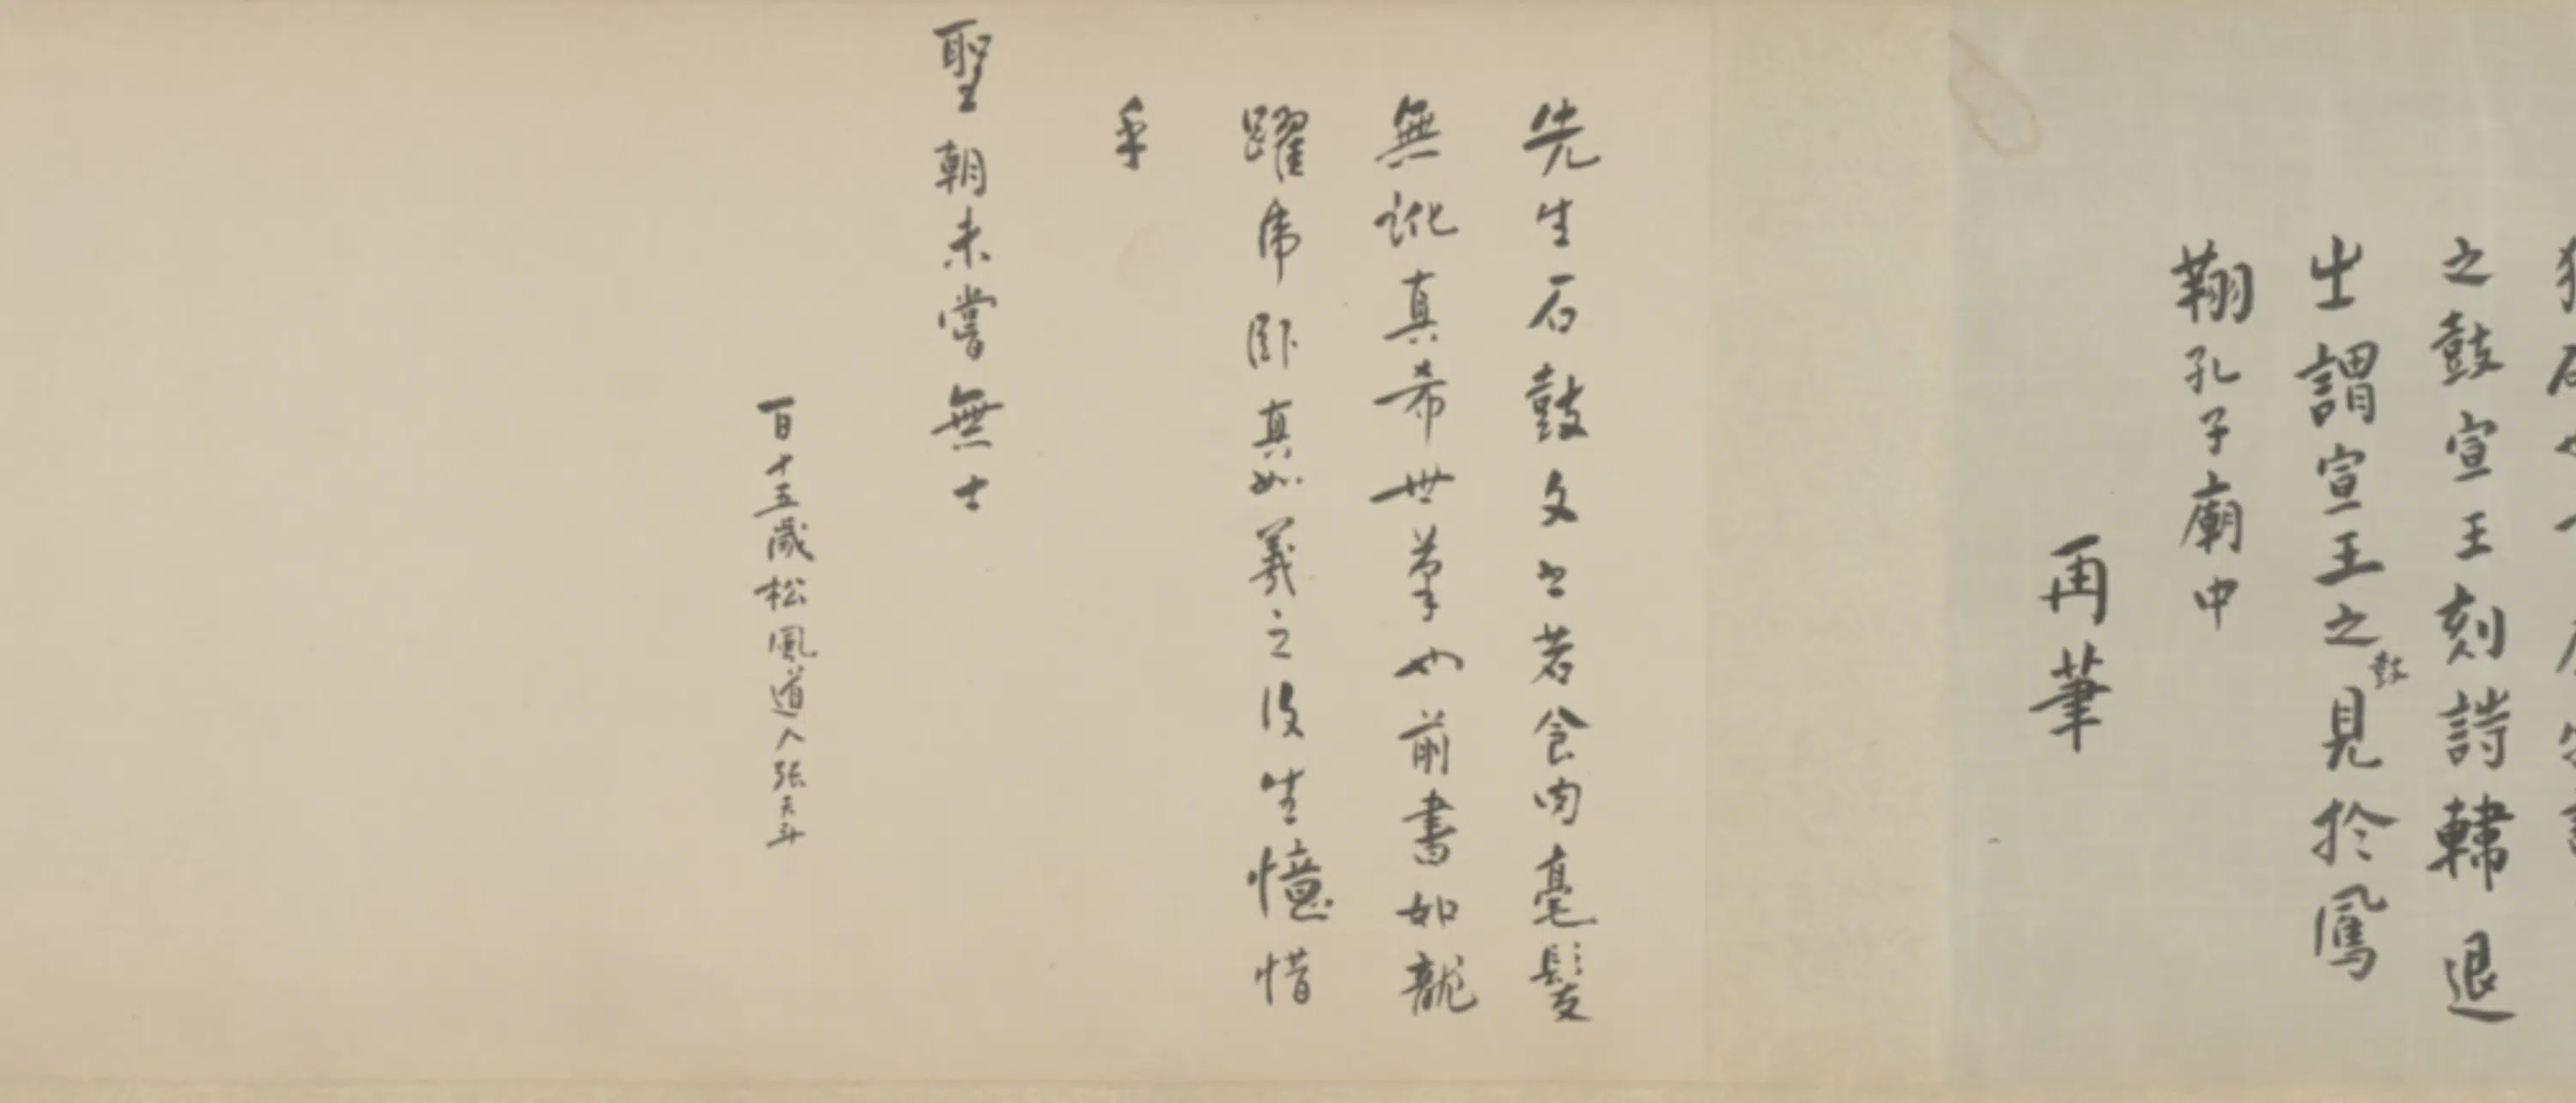 之鼓宣王刻詩韓退
出謂宣王之鼓見於鳳
翔孔子廟中
再筆
先生石鼓文書若食肉毫髮
無訛真希世筆也前書如龍
躍虎卧真如羲之後生憶惜
乎
聖朝未嘗無士
百十五歲松風道人張天斗